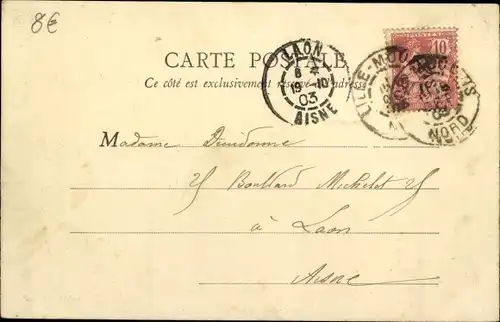 8€
CARTE POSTALE
Ce côté est exclusivement réservé à l'adresse
LAON
8
19-10
03
AISNE
10
POSTES
LILLE-MOU
NORD
Madame
25 Boulvard Michelet 25
à Laon
Aisne